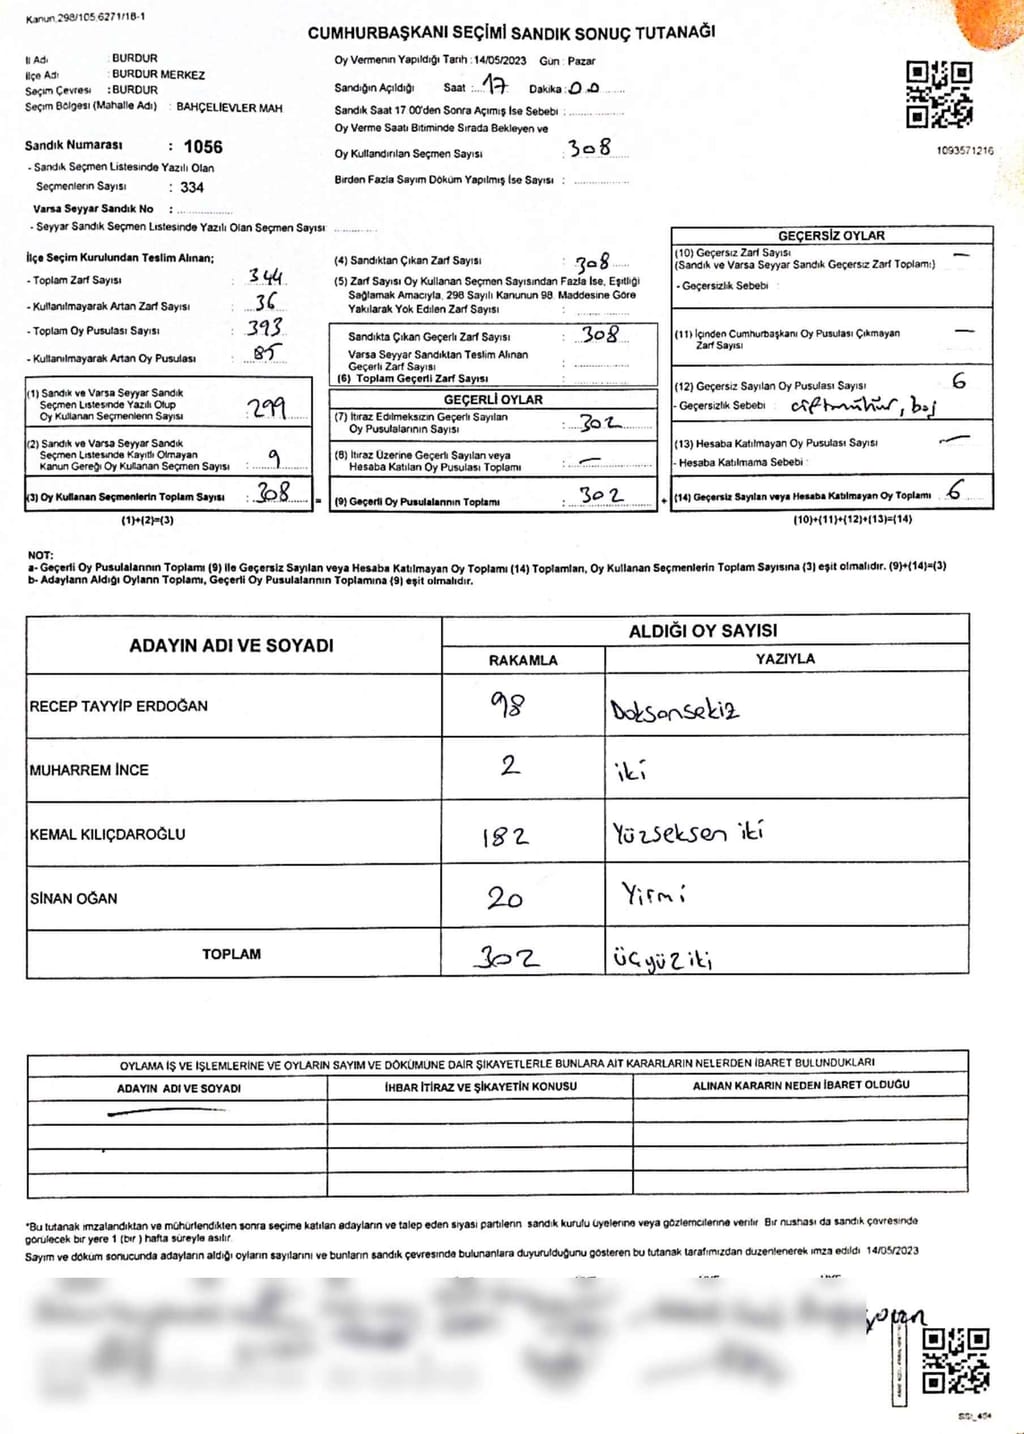 Kanun 298/105,6271/18-1
CUMHURBAŞKANI SEÇİMİ SANDIK SONUÇ TUTANAĞI
İl Adı : BURDUR
İlçe Adı : BURDUR MERKEZ
Seçim Çevresi : BURDUR
Seçim Bölgesi (Mahalle Adı) : BAHÇELİEVLER MAH
Sandık Numarası : 1056
- Sandık Seçmen Listesinde Yazılı Olan
Seçmenlerin Sayısı : 334
Varsa Seyyar Sandık No :
- Seyyar Sandık Seçmen Listesinde Yazılı Olan Seçmen Sayısı
Oy Vermenin Yapıldığı Tarih : 14/05/2023 Gün : Pazar
Sandığın Açıldığı Saat : 17 Dakika : 00
Sandık Saat 17 00'den Sonra Açımış İse Sebebi :
Oy Verme Saati Bitiminde Sırada Bekleyen ve
Oy Kullandırılan Seçmen Sayısı : 308
Birden Fazla Sayım Döküm Yapılmış İse Sayısı :
1093571216
İlçe Seçim Kurulundan Teslim Alınan;
- Toplam Zarf Sayısı : 344
- Kullanılmayarak Artan Zarf Sayısı : 36
- Toplam Oy Pusulası Sayısı : 393
- Kullanılmayarak Artan Oy Pusulası : 85
(1) Sandık ve Varsa Seyyar Sandık
Seçmen Listesinde Yazılı Olup
Oy Kullanan Seçmenlerin Sayısı : 299
(2) Sandık ve Varsa Seyyar Sandık
Seçmen Listesinde Kayıtlı Olmayan
Kanun Gereği Oy Kullanan Seçmen Sayısı : 9
(3) Oy Kullanan Seçmenlerin Toplam Sayısı : 308 =
(1)+(2)=(3)
(4) Sandıktan Çıkan Zarf Sayısı : 308
(5) Zarf Sayısı Oy Kullanan Seçmen Sayısından Fazla İse, Eşitliği
Sağlamak Amacıyla, 298 Sayılı Kanunun 98. Maddesine Göre
Yakılarak Yok Edilen Zarf Sayısı :
Sandıkta Çıkan Geçerli Zarf Sayısı : 308
Varsa Seyyar Sandıktan Teslim Alınan
Geçerli Zarf Sayısı :
(6) Toplam Geçerli Zarf Sayısı :
GEÇERLİ OYLAR
(7) İtiraz Edilmeksizin Geçerli Sayılan
Oy Pusulalarının Sayısı : 302
(8) İtiraz Üzerine Geçerli Sayılan veya
Hesaba Katılan Oy Pusulası Toplamı : —
(9) Geçerli Oy Pusulalarının Toplamı : 302 +
GEÇERSİZ OYLAR
(10) Geçersiz Zarf Sayısı —
(Sandık ve Varsa Seyyar Sandık Geçersiz Zarf Toplamı)
- Geçersizlik Sebebi :
(11) İçinden Cumhurbaşkanı Oy Pusulası Çıkmayan —
Zarf Sayısı
(12) Geçersiz Sayılan Oy Pusulası Sayısı 6
- Geçersizlik Sebebi : çift mühür, boş
(13) Hesaba Katılmayan Oy Pusulası Sayısı —
- Hesaba Katılmama Sebebi :
(14) Geçersiz Sayılan veya Hesaba Katılmayan Oy Toplamı 6
(10)+(11)+(12)+(13)=(14)
NOT:
a- Geçerli Oy Pusulalarının Toplamı (9) ile Geçersiz Sayılan veya Hesaba Katılmayan Oy Toplamı (14) Toplamları, Oy Kullanan Seçmenlerin Toplam Sayısına (3) eşit olmalıdır. (9)+(14)=(3)
b- Adayların Aldığı Oyların Toplamı, Geçerli Oy Pusulalarının Toplamına (9) eşit olmalıdır.
ADAYIN ADI VE SOYADI ALDIĞI OY SAYISI
RAKAMLA YAZIYLA
RECEP TAYYİP ERDOĞAN 98 Doksansekiz
MUHARREM İNCE 2 iki
KEMAL KILIÇDAROĞLU 182 Yüzseksen iki
SİNAN OĞAN 20 Yirmi
TOPLAM 302 üçyüz iki
OYLAMA İŞ VE İŞLEMLERİNE VE OYLARIN SAYIM VE DÖKÜMÜNE DAİR ŞİKAYETLERLE BUNLARA AİT KARARLARIN NELERDEN İBARET BULUNDUKLARI
ADAYIN ADI VE SOYADI İHBAR İTİRAZ VE ŞİKAYETİN KONUSU ALINAN KARARIN NEDEN İBARET OLDUĞU
*Bu tutanak imzalandıktan ve mühürlendikten sonra seçime katılan adayların ve talep eden siyasi partilerin sandık kurulu üyelerine veya gözlemcilerine verilir. Bir nushası da sandık çevresinde
görülecek bir yere 1 (bir) hafta süreyle asılır.
Sayım ve döküm sonucunda adayların aldığı oyların sayılarını ve bunların sandık çevresinde bulunanlara duyurulduğunu gösteren bu tutanak tarafımızdan düzenlenerek imza edildi 14/05/2023